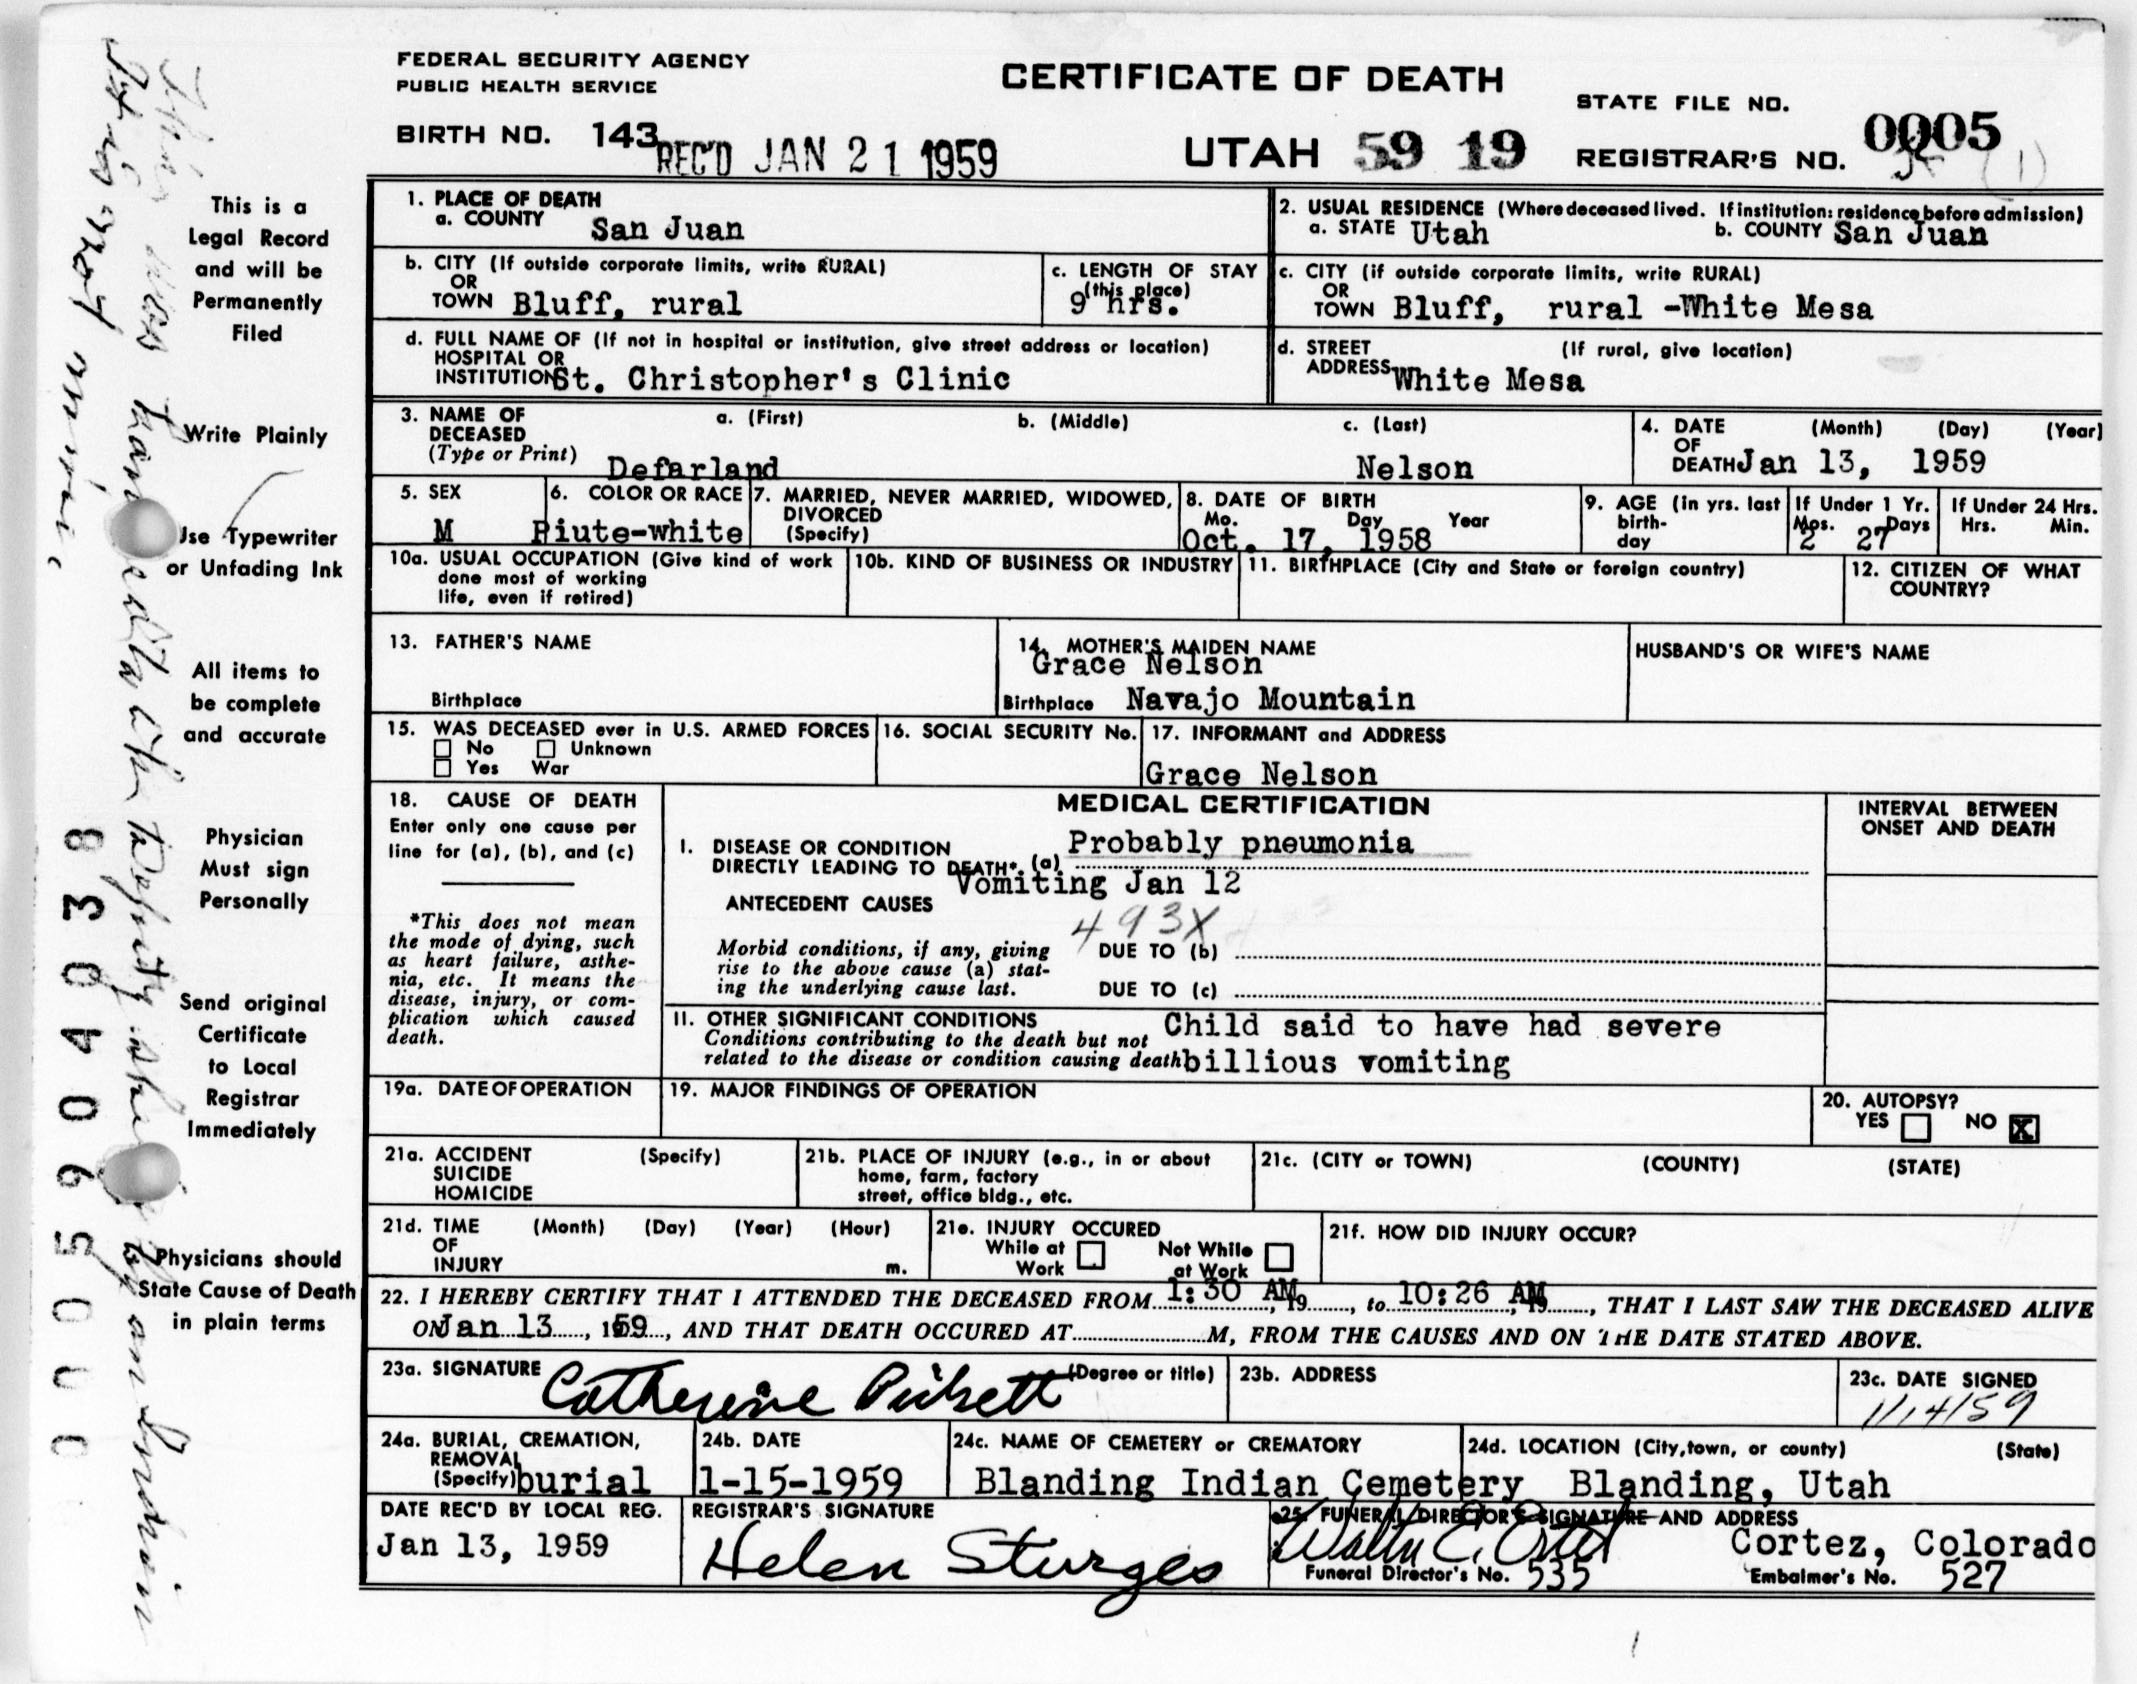 FEDERAL SECURITY AGENCY
PUBLIC HEALTH SERVICE
CERTIFICATE OF DEATH
STATE FILE NO.
BIRTH NO. 143
REC'D JAN 21 1959
UTAH 59 19
REGISTRAR'S NO.
0005
(1)
This is a
Legal Record
and will be
Permanently
Filed
Write Plainly
Use Typewriter
or Unfading Ink
All items to
be complete
and accurate
Physician
Must sign
Personally
Send original
Certificate
to Local
Registrar
Immediately
Physicians should
State Cause of Death
in plain terms
0005904038
1. PLACE OF DEATH
a. COUNTY San Juan
2. USUAL RESIDENCE (Where deceased lived. If institution: residence before admission)
a. STATE Utah b. COUNTY San Juan
b. CITY (If outside corporate limits, write RURAL)
OR
TOWN Bluff, rural
c. LENGTH OF STAY
(this place)
9 hrs.
c. CITY (if outside corporate limits, write RURAL)
OR
TOWN Bluff, rural -White Mesa
d. FULL NAME OF (If not in hospital or institution, give street address or location)
HOSPITAL OR
INSTITUTION St. Christopher's Clinic
d. STREET (If rural, give location)
ADDRESS White Mesa
3. NAME OF a. (First) b. (Middle) c. (Last)
DECEASED
(Type or Print) Defarland Nelson
4. DATE (Month) (Day) (Year)
OF
DEATH Jan 13, 1959
5. SEX
M
6. COLOR OR RACE
Piute-white
7. MARRIED, NEVER MARRIED, WIDOWED,
DIVORCED
(Specify)
8. DATE OF BIRTH
Mo. Day Year
Oct. 17, 1958
9. AGE (in yrs. last
birth-
day
If Under 1 Yr.
Mos. Days
2 27
If Under 24 Hrs.
Hrs. Min.
10a. USUAL OCCUPATION (Give kind of work
done most of working
life, even if retired)
10b. KIND OF BUSINESS OR INDUSTRY
11. BIRTHPLACE (City and State or foreign country)
12. CITIZEN OF WHAT
COUNTRY?
13. FATHER'S NAME
Birthplace
14. MOTHER'S MAIDEN NAME
Grace Nelson
Birthplace Navajo Mountain
HUSBAND'S OR WIFE'S NAME
15. WAS DECEASED ever in U.S. ARMED FORCES
No Unknown
Yes War
16. SOCIAL SECURITY No.
17. INFORMANT and ADDRESS
Grace Nelson
18. CAUSE OF DEATH
Enter only one cause per
line for (a), (b), and (c)
*This does not mean
the mode of dying, such
as heart failure, asthe-
nia, etc. It means the
disease, injury, or com-
plication which caused
death.
MEDICAL CERTIFICATION
INTERVAL BETWEEN
ONSET AND DEATH
I. DISEASE OR CONDITION Probably pneumonia
DIRECTLY LEADING TO DEATH*. (a)
Vomiting Jan 12
ANTECEDENT CAUSES
493X
Morbid conditions, if any, giving DUE TO (b)
rise to the above cause (a) stat-
ing the underlying cause last. DUE TO (c)
II. OTHER SIGNIFICANT CONDITIONS Child said to have had severe
Conditions contributing to the death but not
related to the disease or condition causing death billious vomiting
19a. DATE OF OPERATION
19. MAJOR FINDINGS OF OPERATION
20. AUTOPSY?
YES NO X
21a. ACCIDENT (Specify)
SUICIDE
HOMICIDE
21b. PLACE OF INJURY (e.g., in or about
home, farm, factory
street, office bldg., etc.
21c. (CITY or TOWN) (COUNTY) (STATE)
21d. TIME (Month) (Day) (Year) (Hour)
OF
INJURY m.
21e. INJURY OCCURED
While at Not While
Work at Work
21f. HOW DID INJURY OCCUR?
22. I HEREBY CERTIFY THAT I ATTENDED THE DECEASED FROM 1:30 AM, 19, to 10:26 AM, 19, THAT I LAST SAW THE DECEASED ALIVE
ON Jan 13, 1959, AND THAT DEATH OCCURED AT M, FROM THE CAUSES AND ON THE DATE STATED ABOVE.
23a. SIGNATURE Catherine Pickett (Degree or title)
23b. ADDRESS
23c. DATE SIGNED
1/14/59
24a. BURIAL, CREMATION,
REMOVAL
(Specify) burial
24b. DATE
1-15-1959
24c. NAME OF CEMETERY or CREMATORY
Blanding Indian Cemetery
24d. LOCATION (City, town, or county) (State)
Blanding, Utah
DATE REC'D BY LOCAL REG.
Jan 13, 1959
REGISTRAR'S SIGNATURE
Helen Sturges
25. FUNERAL DIRECTOR'S SIGNATURE AND ADDRESS
Cortez, Colorado
Funeral Director's No. 535
Embalmer's No. 527